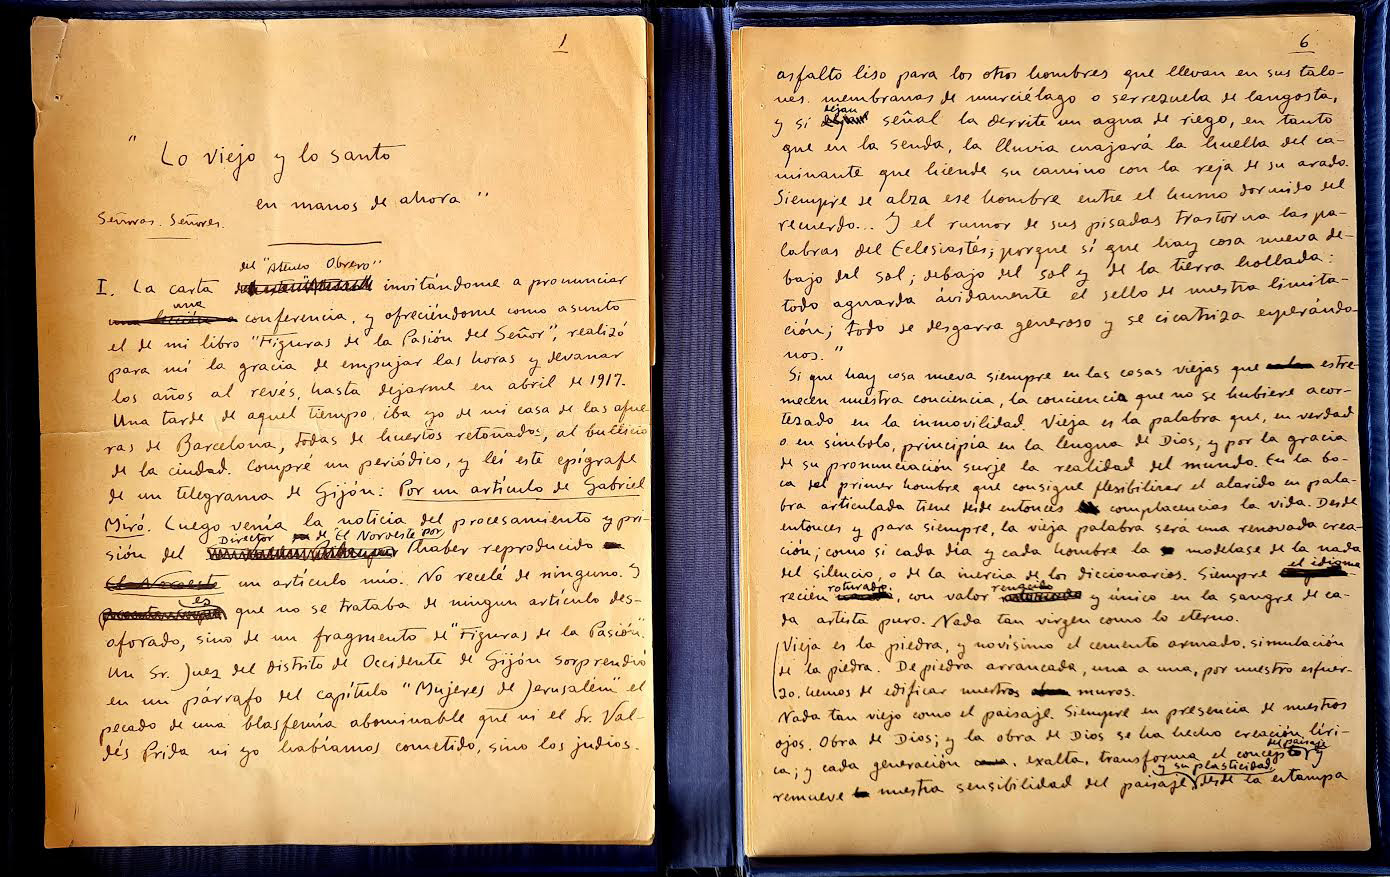 1
"Lo viejo y lo santo
en manos de ahora"
Señoras. Señores.
del "Ateneo Obrero"
I. La carta invitándome a pronunciar
una
conferencia, y ofreciéndome como asunto
el de mi libro "Figuras de la Pasión del Señor", realizó
para mí la gracia de empujar las horas y devanar
los años al revés, hasta dejarme en abril de 1917.
Una tarde de aquel tiempo, iba yo de mi casa de las afue-
ras de Barcelona, todas de huertos retoñados, al bullicio
de la ciudad. Compré un periódico, y leí este epígrafe
de un telegrama de Gijón: Por un artículo de Gabriel
Miró. Luego venía la noticia del procesamiento y pri-
Director de El Noroeste por
sión del haber reproducido
un artículo mío. No recelé de ninguno. Y
es
que no se trataba de ningun artículo des-
aforado, sino de un fragmento de "Figuras de la Pasión".
Un Sr. Juez del distrito de Occidente de Gijón sorprendió
en un párrafo del capítulo "Mujeres de Jerusalém" el
pecado de una blasfemia abominable que ni el Sr. Val-
dés Prida ni yo habíamos cometido, sino los judios.
6
asfalto liso para los otros hombres que llevan en sus talo-
nes membranas de murciélago o serrezuela de langosta,
dejan
y si señal la derrite un agua de riego, en tanto
que en la senda, la lluvia cuajará la huella del ca-
minante que hiende su camino con la reja de su arado.
Siempre se alza ese hombre entre el humo dormido del
recuerdo... Y el rumor de sus pisadas trastorna las pa-
labras del Eclesiastés; porque sí que hay cosa nueva de-
bajo del sol; debajo del sol y de la tierra hollada:
todo aguarda ávidamente el sello de nuestra limita-
ción; todo se desgarra generoso y se cicatriza esperándo-
nos."
Si que hay cosa nueva siempre en las cosas viejas que estre-
mecen nuestra conciencia, la conciencia que no se hubiere acor-
tezado en la inmovilidad. Vieja es la palabra que, en verdad
o en símbolo, principia en la lengua de Dios, y por la gracia
de su pronunciación surge la realidad del mundo. En la bo-
ca del primer hombre que consigue flexibilizar el alarido en pala-
bra articulada tiene desde entonces complacencias la vida. Desde
entonces y para siempre, la vieja palabra será una renovada crea-
ción; como si cada dia y cada hombre la modelase de la nada
del silencio, o de la inercia de los diccionarios. Siempre el idioma
roturado
recién , con valor y único en la sangre de ca-
da artista puro. Nada tan virgen como lo eterno.
Vieja es la piedra, y novísimo el cemento armado, simulación
de la piedra. De piedra arrancada, una a una, por nuestro esfuer-
zo, hemos de edificar nuestros muros.
Nada tan viejo como el paisaje. Siempre en presencia de nuestros
ojos. Obra de Dios; y la obra de Dios se ha hecho creación líri-
ca; y cada generación exalta, transforma el concepto y
del paisaje
y su plasticidad,
remueve nuestra sensibilidad del paisaje, desde la estampa